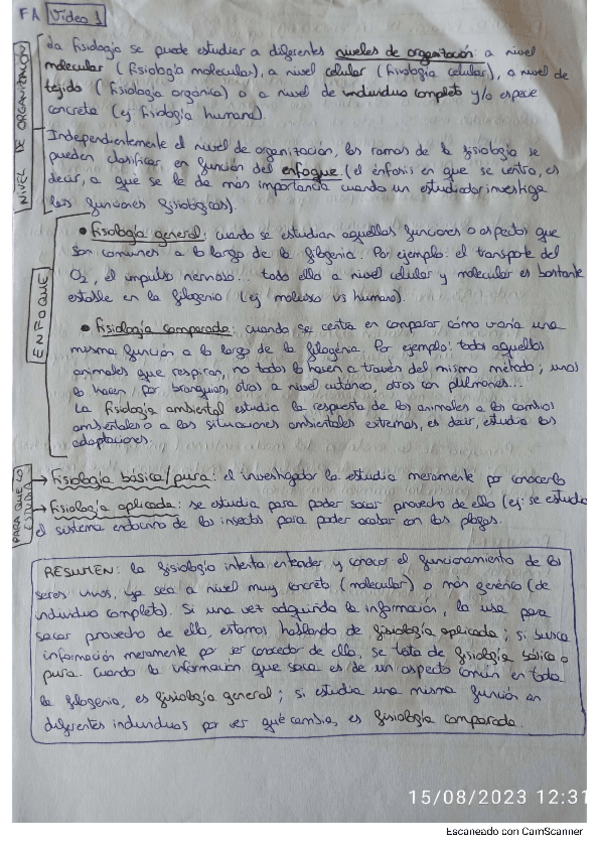 FA Video 1
NIVEL DE ORGANIZACIÓN
La fisiología se puede estudiar a diferentes niveles de organización: a nivel
molecular (fisiología molecular), a nivel celular (fisiología celular), a nivel de
tejido (fisiología orgánica) o a nivel de individuo completo y/o especie
concreta (ej fisiología humana).
Independientemente el nivel de organización, las ramas de la fisiología se
pueden clasificar en función del enfoque (el énfasis en que se centra, es
decir, a qué se le da más importancia cuando un estudiador investiga
las funciones fisiológicas).
ENFOQUE
• Fisiología general: cuando se estudian aquellas funciones o aspectos que
son comunes a lo largo de la filogenia. Por ejemplo: el transporte del
O2, el impulso nervioso... todo ello a nivel celular y molecular es bastante
estable en la filogenia (ej molusco vs humano).
• Fisiología comparada: cuando se centra en comparar cómo varía una
misma función a lo largo de la filogénia. Por ejemplo: todos aquellos
animales que respiran, no todos lo hacen a través del mismo método; unos
lo hacen por branquias, otros a nivel cutáneo, otros con pulmones...
La fisiología ambiental estudia la respuesta de los animales a los cambios
ambientales o a las situaciones ambientales extremas, es decir, estudia las
adaptaciones.
PARA QUE LO
→ Fisiología básica/pura: el investigador la estudia meramente por conocerla
→ Fisiología aplicada: se estudia para poder sacar provecho de ello (ej: se estudia
el sistema endocrino de los insectos para poder acabar con las plagas.
RESUMEN: la fisiología intenta entender y conocer el funcionamiento de los
seres vivos, ya sea a nivel muy concreto (molecular) o más genérico (de
individuo completo). Si una vez adquirida la información, la usa para
sacar provecho de ella, estamos hablando de fisiología aplicada; si busca
información meramente por ser conocedor de ella, se trata de fisiología básica o
pura. Cuando la información que saca es de un aspecto común en toda
la filogenia, es fisiología general; si estudia una misma función en
diferentes individuos por ver qué cambia, es fisiología comparada.
15/08/2023 12:31
Escaneado con CamScanner